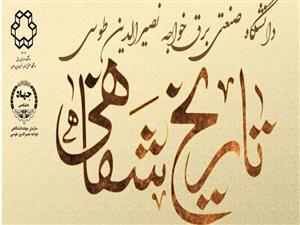 دانشگاه صنعتی برق خواجه نصیرالدین طوسی
تاریخ شفاهی
جهاد
دانشگاهی
سازمان جهاد دانشگاهی
خواجه نصیرالدین طوسی